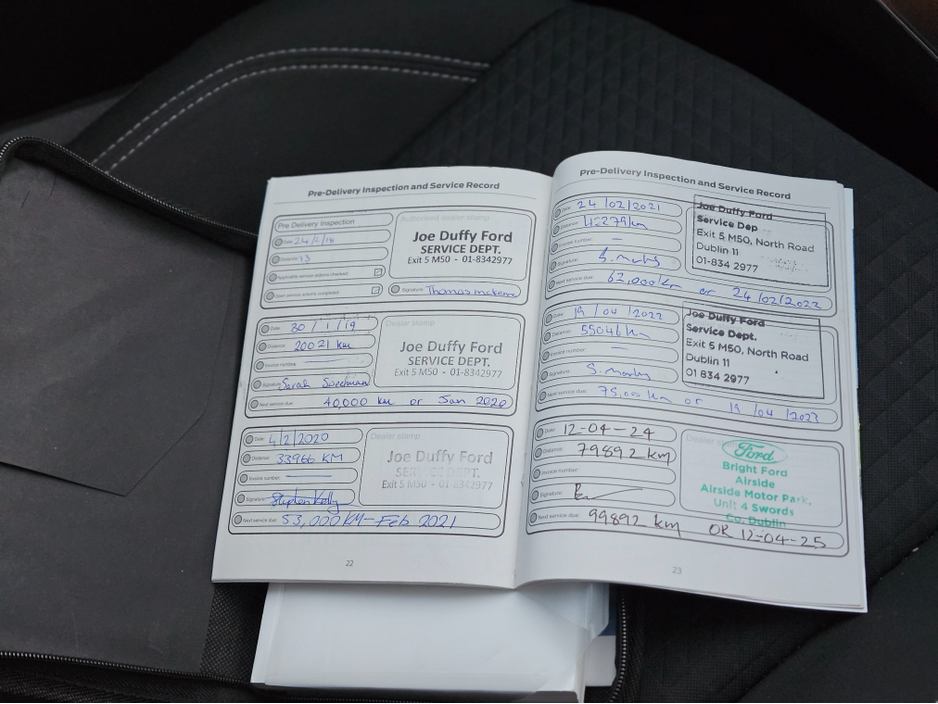 Pre-Delivery Inspection and Service Record
Pre Delivery Inspection
Date: 24/
Distance: 13
Applicable service actions checked
Open service actions completed
Authorised dealer stamp
Joe Duffy Ford
SERVICE DEPT.
Exit 5 M50 - 01-8342977
Signature: Thomas
Date: 30/1/19
Distance: 20021 km
Invoice number:
Signature: Sarah
Next service due: 40,000 km or Jan 2020
Dealer stamp
Joe Duffy Ford
SERVICE DEPT.
Exit 5 M50 - 01-8342977
Date: 4/2/2020
Distance: 33966 KM
Invoice number:
Signature: Stephen Kelly
Next service due: 53,000 KM - Feb 2021
Dealer stamp
Joe Duffy Ford
SERVICE DEPT.
Exit 5 M50 - 01-8342977
22
Pre-Delivery Inspection and Service Record
Date: 24/02/2021
Distance: 42279km
Invoice number: —
Signature: S.
Next service due: 62,000km or 24/02/2022
Joe Duffy Ford
Service Dep
Exit 5 M50, North Road
Dublin 11
01-834 2977
Date: 19/04/2022
Distance: 55046km
Invoice number: —
Signature: S.
Next service due: 75,000km or 19/04/2023
Joe Duffy Ford
Service Dept.
Exit 5 M50, North Road
Dublin 11
01 834 2977
Date: 12-04-24
Distance: 79892 km
Invoice number:
Signature:
Next service due: 99892 km OR 12-04-25
Dealer stamp
Ford
Bright Ford
Airside
Airside Motor Park,
Unit 4 Swords
Co. Dublin
23